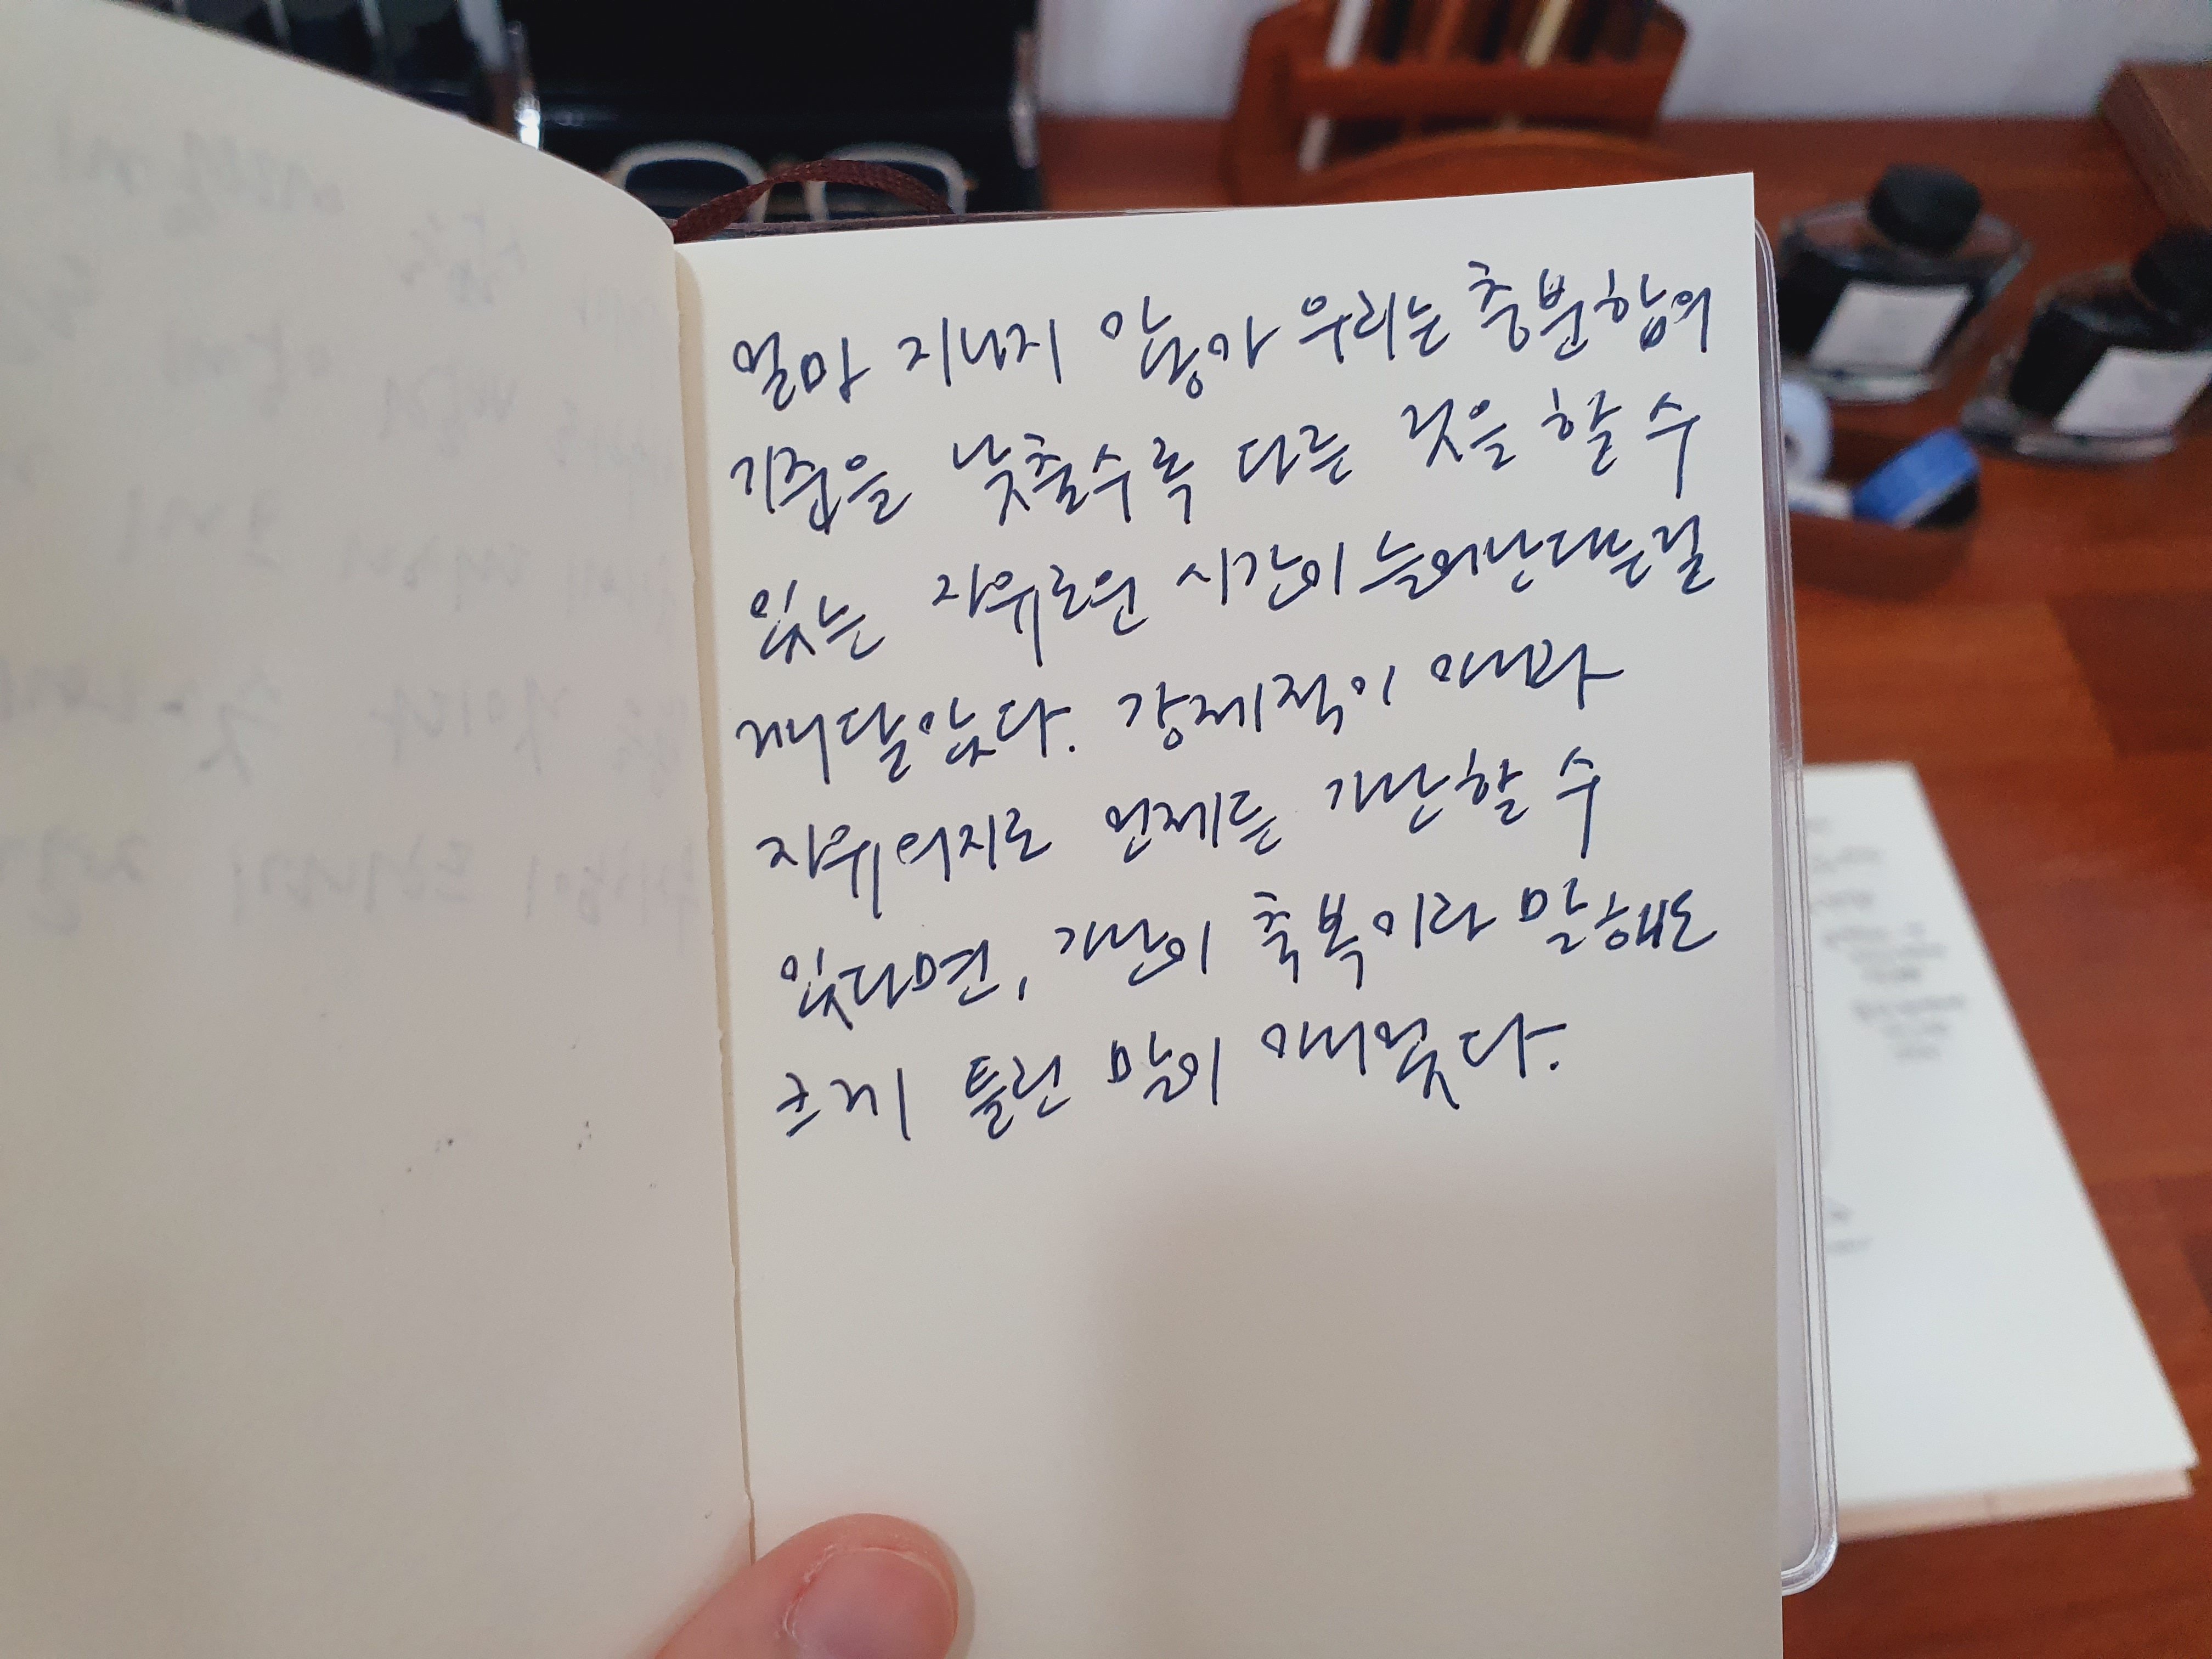 얼마 지나지 않아 우리는 충분함의
기준을 낮출수록 다른 것을 할 수
있는 자유로운 시간이 늘어난다는걸
깨달았다. 강제적이 아니라
자유의지로 언제든 가난할 수
있다면, 가난이 축복이라 말해도
크게 틀린 말이 아니었다.